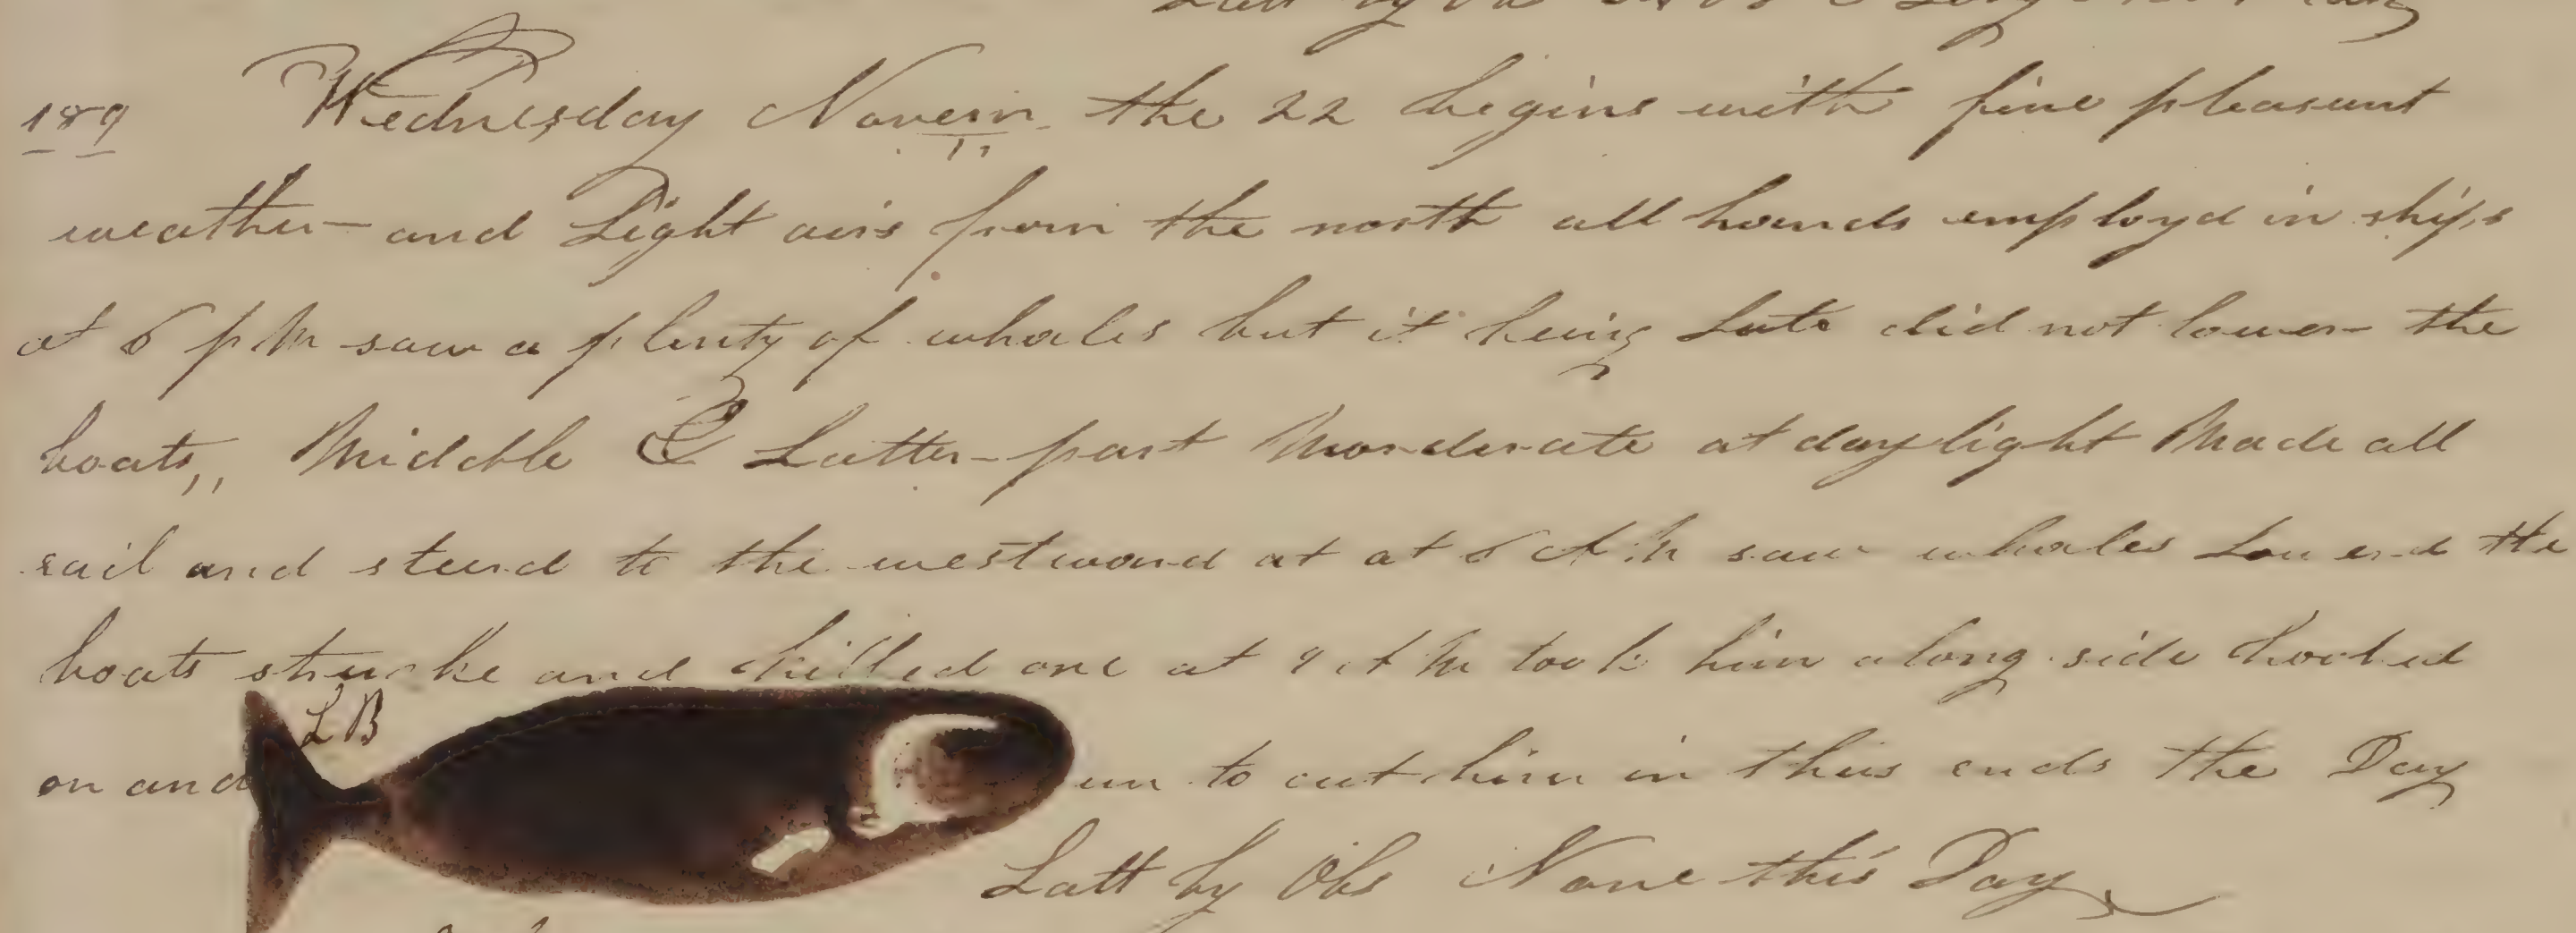 189 Wednesday Novem the 22 begins with fine pleasant
weather and Light airs from the north all hands employd in ships
at 6 p M saw a plenty of whales but it being Late did not lower the
boats,, Middle & Latter part Monderate at daylight Made all
sail and steerd to the westward at at 6 A M saw whales Lowerd the
boats strucke and killed one at 9 A M took him along side hooked
L B
on and to cut him in thus ends the Day
Latt by Obs None this Day